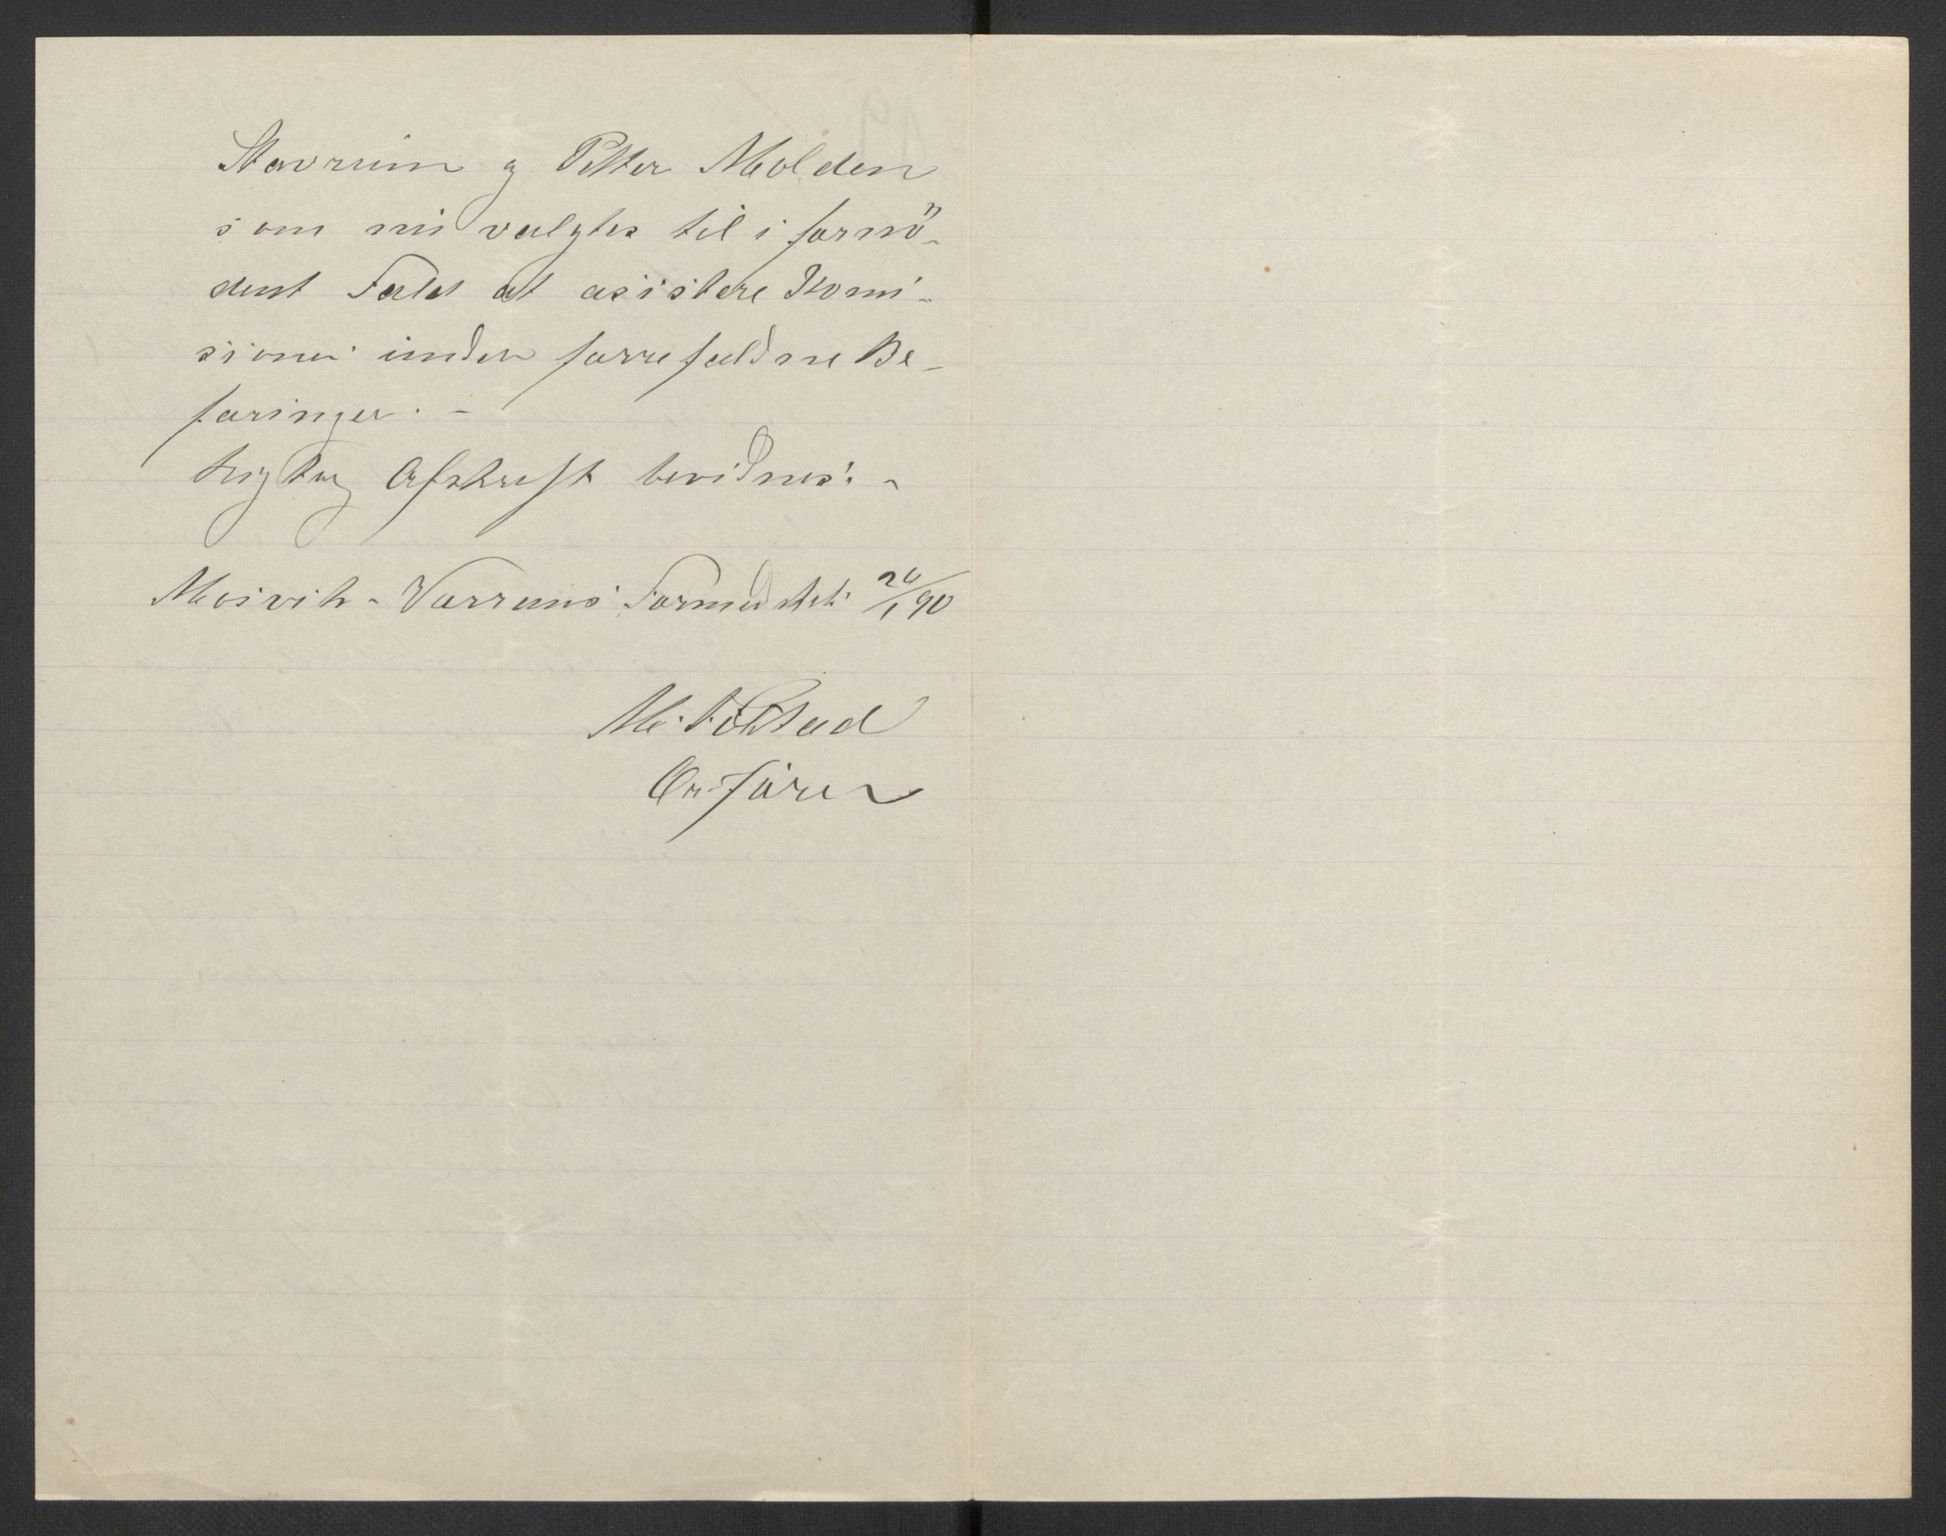 Stavrum og Petter Molden
som nu valgtes til i fornö-
dent Fald at asistere Komi-
sionen under forrefaldne Be-
faringer. -
Rigtig Afskrift bevidnes: -
Mosvik - Varrens Formandskab 24/1 90
M.
Ordfører